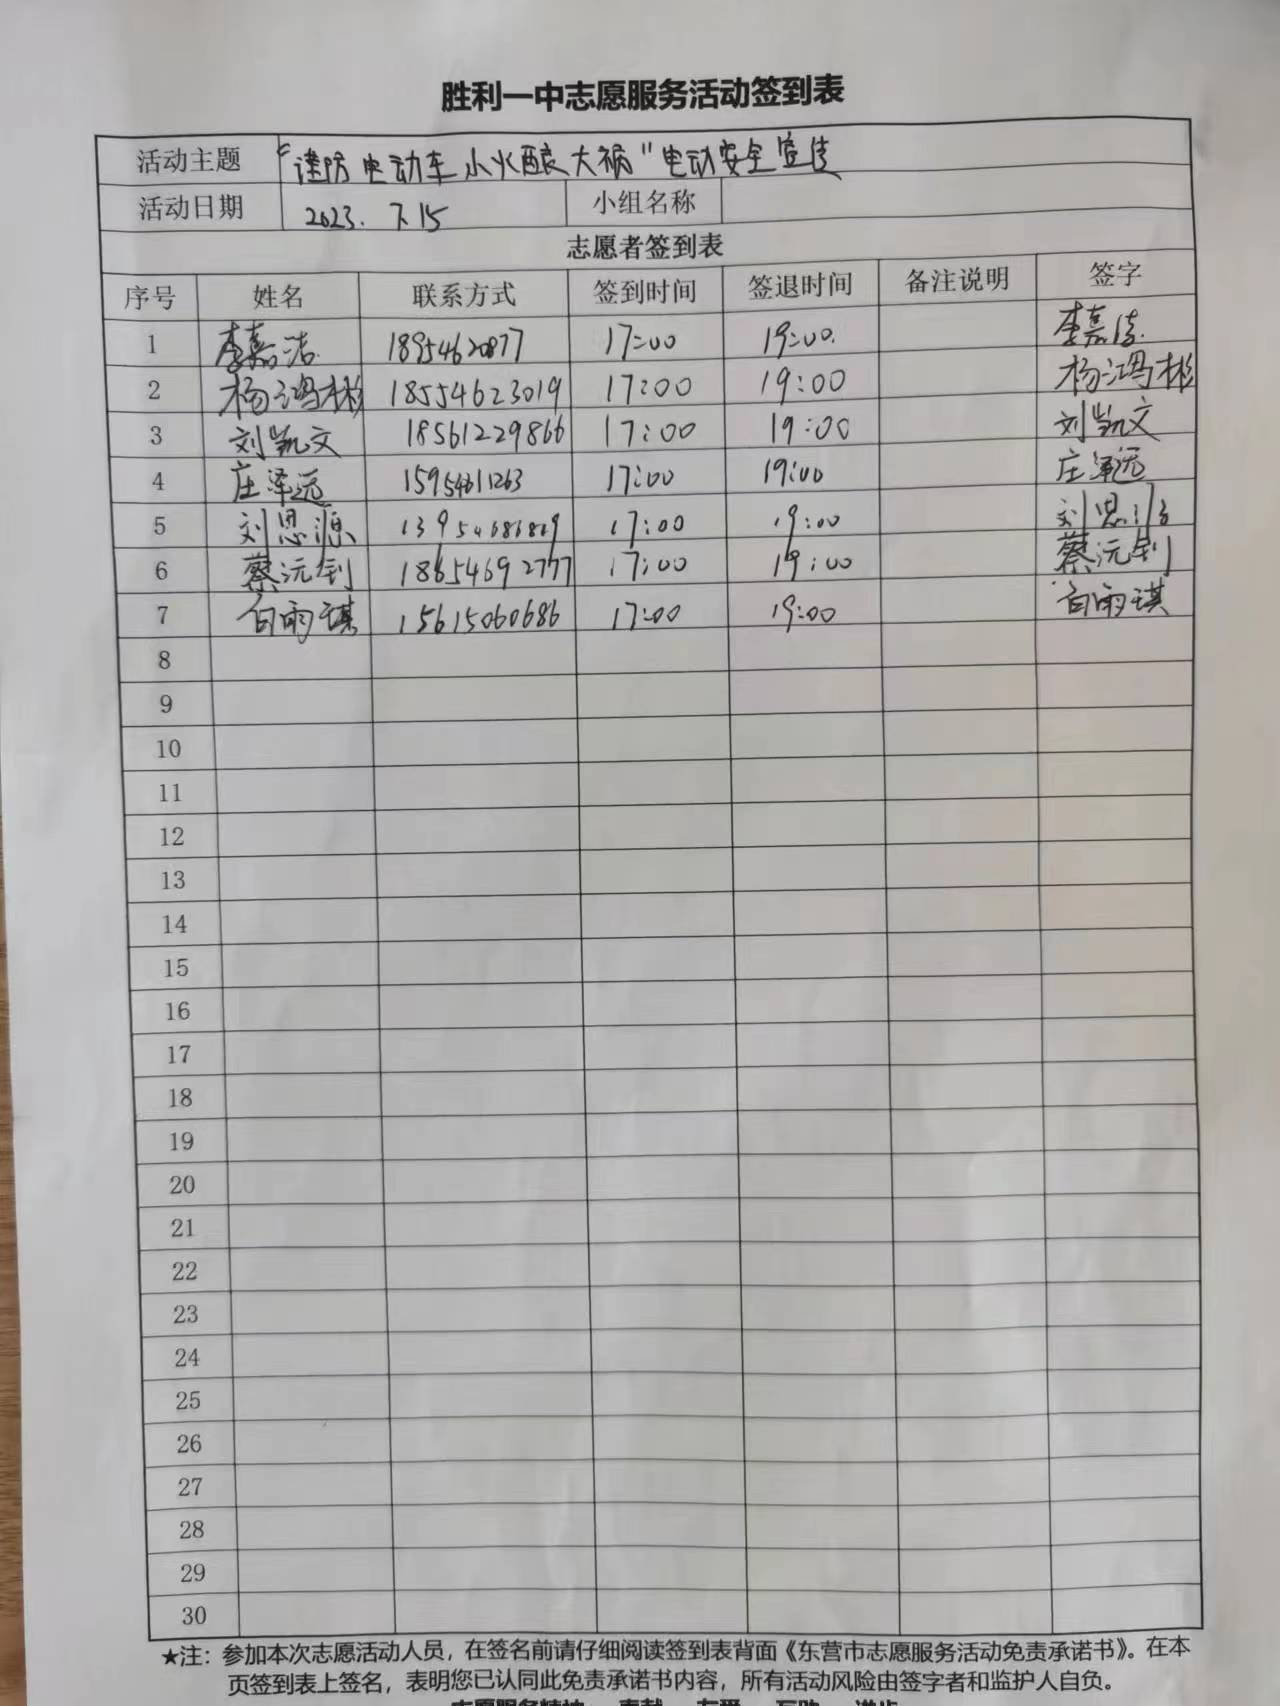 胜利一中志愿服务活动签到表
活动主题 “谨防电动车小火酿大祸”电动安全宣传
活动日期 2023. 7. 15 小组名称
志愿者签到表
序号 姓名 联系方式 签到时间 签退时间 备注说明 签字
1 李嘉洁 18954620877 17:00 19:00. 李嘉洁
2 杨鸿彬 18554623019 17:00 19:00 杨鸿彬
3 刘凯文 18561229866 17:00 19:00 刘凯文
4 庄泽远 15954611263 17:00 19:00 庄泽远
5 刘思源 13954686869 17:00 19:00 刘思源
6 蔡沅钊 18654692777 17:00 19:00 蔡沅钊
7 白雨琪 15615060686 17:00 19:00 白雨琪
8
9
10
11
12
13
14
15
16
17
18
19
20
21
22
23
24
25
26
27
28
29
30
★注：参加本次志愿活动人员，在签名前请仔细阅读签到表背面《东营市志愿服务活动免责承诺书》。在本
页签到表上签名，表明您已认同此免责承诺书内容，所有活动风险由签字者和监护人自负。
志愿服务精神 奉献 友爱 互助 进步